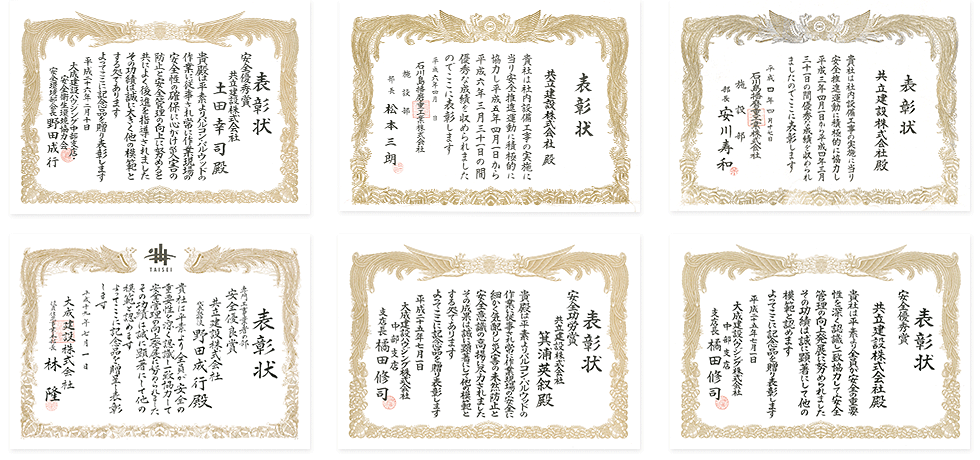 表彰状
安全優秀賞
共立建設株式会社
土田幸司殿
貴殿は平素よりパルコンパルウッドの
作業に従事され常に作業現場の
安全性の確保に心がけ災害の
防止と安全管理の向上に努めると
共によく後進を指導されました
その功績は誠に大きく他の模範と
する処であります
よってここに記念品を贈り表彰します
平成二十六年二月十日
大成建設ハウジング中部支店
安全衛生環境協力会
野田成行
表彰状
共立建設株式会社殿
貴社は社内設備工事の実施に
当り安全推進運動に積極的に
協力し平成五年四月一日から
平成六年三月三十一日の間
優秀な成績を収められました
のでここに表彰します
平成六年四月
石川島播磨重工業株式会社
施設部
部長 松本三朗
表彰状
共立建設株式会社殿
貴社は社内設備工事の実施に当り
安全推進運動に積極的に協力し
平成三年四月一日から平成四年三月
三十一日の間優秀な成績を収められ
ましたのでここに表彰します
平成四年四月十七日
石川島播磨重工業株式会社
施設部
部長 安川寿和
TAISEI
表彰状
安全優良賞
共立建設株式会社
野田成行殿
貴社は平素より全員が安全の
重要性を深く認識し一致協力して
安全管理の向上発展に努められました
その功績は誠に顕著にして他の
模範と認めます
よってここに記念品を贈呈し表彰
します
平成十九年七月一日
大成建設株式会社
林隆
表彰状
安全功労賞
共立建設株式会社
箕浦英叙殿
貴殿は平素よりパルコンパルウッドの
作業に従事され常に作業現場の安全に
細かな気配りで災害の未然防止と
安全意識の高揚に尽力されました
その成果は誠に顕著にして他の模範と
する処であります
よってここに記念品を贈り表彰します
平成二十五年七月一日
大成建設ハウジング株式会社
中部支店
支店長 橘田修司
表彰状
安全優秀賞
共立建設株式会社殿
貴社は平素より全員が安全の重要
性を深く認識し一致協力して安全
管理の向上発展に努められました
その功績は誠に顕著にして他の
模範と認めます
よってここに記念品を贈り表彰します
平成二十五年七月一日
大成建設ハウジング株式会社
中部支店
支店長 橘田修司